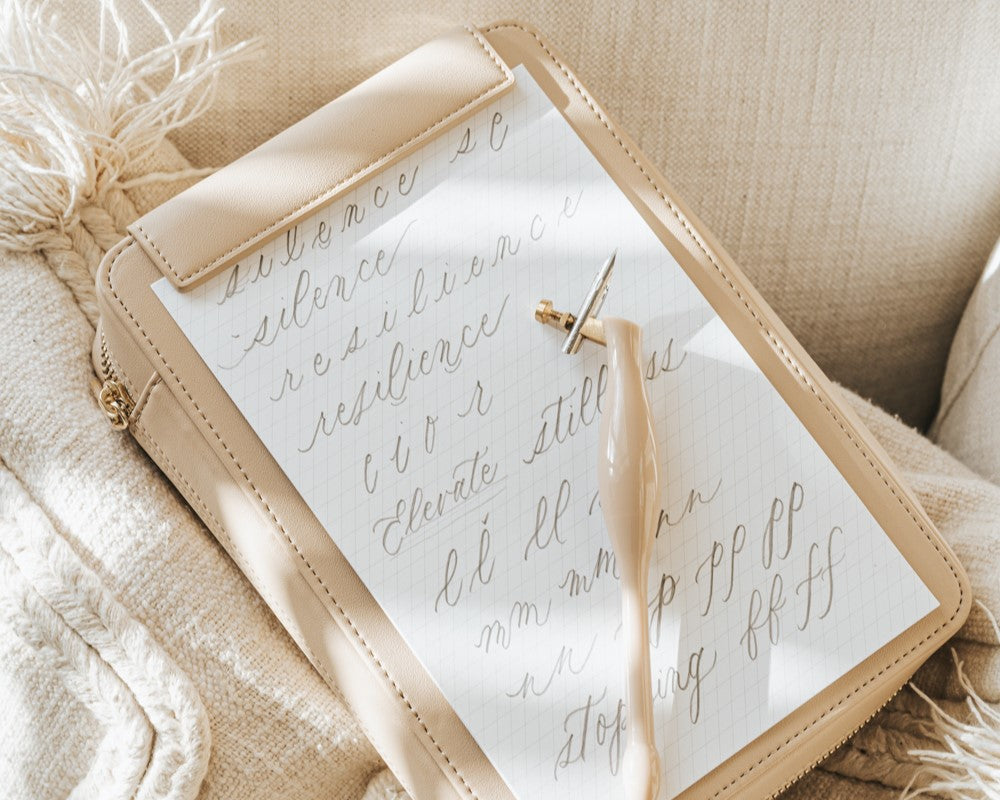 silence se
silence
resilience
resilience
e i o r
Elevate stillness
l l ll
m m mm nn
n n p pp pp
stopping ff ff